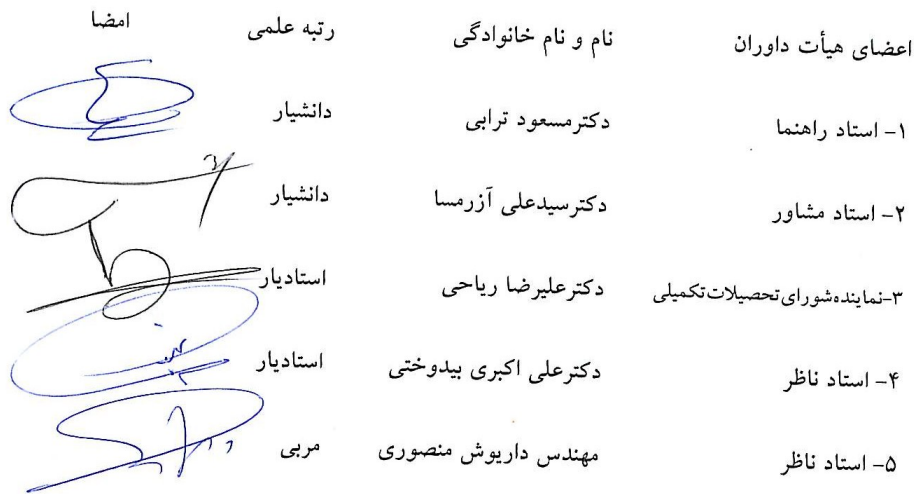 اعضای هیأت داوران نام و نام خانوادگی رتبه علمی امضا
۱- استاد راهنما دکترمسعود ترابی دانشیار
۲- استاد مشاور دکترسیدعلی آزرمسا دانشیار
۳-نماینده شورای تحصیلات تکمیلی دکترعلیرضا ریاحی استادیار
۴- استاد ناظر دکترعلی اکبری بیدوختی استادیار
۵- استاد ناظر مهندس داریوش منصوری مربی